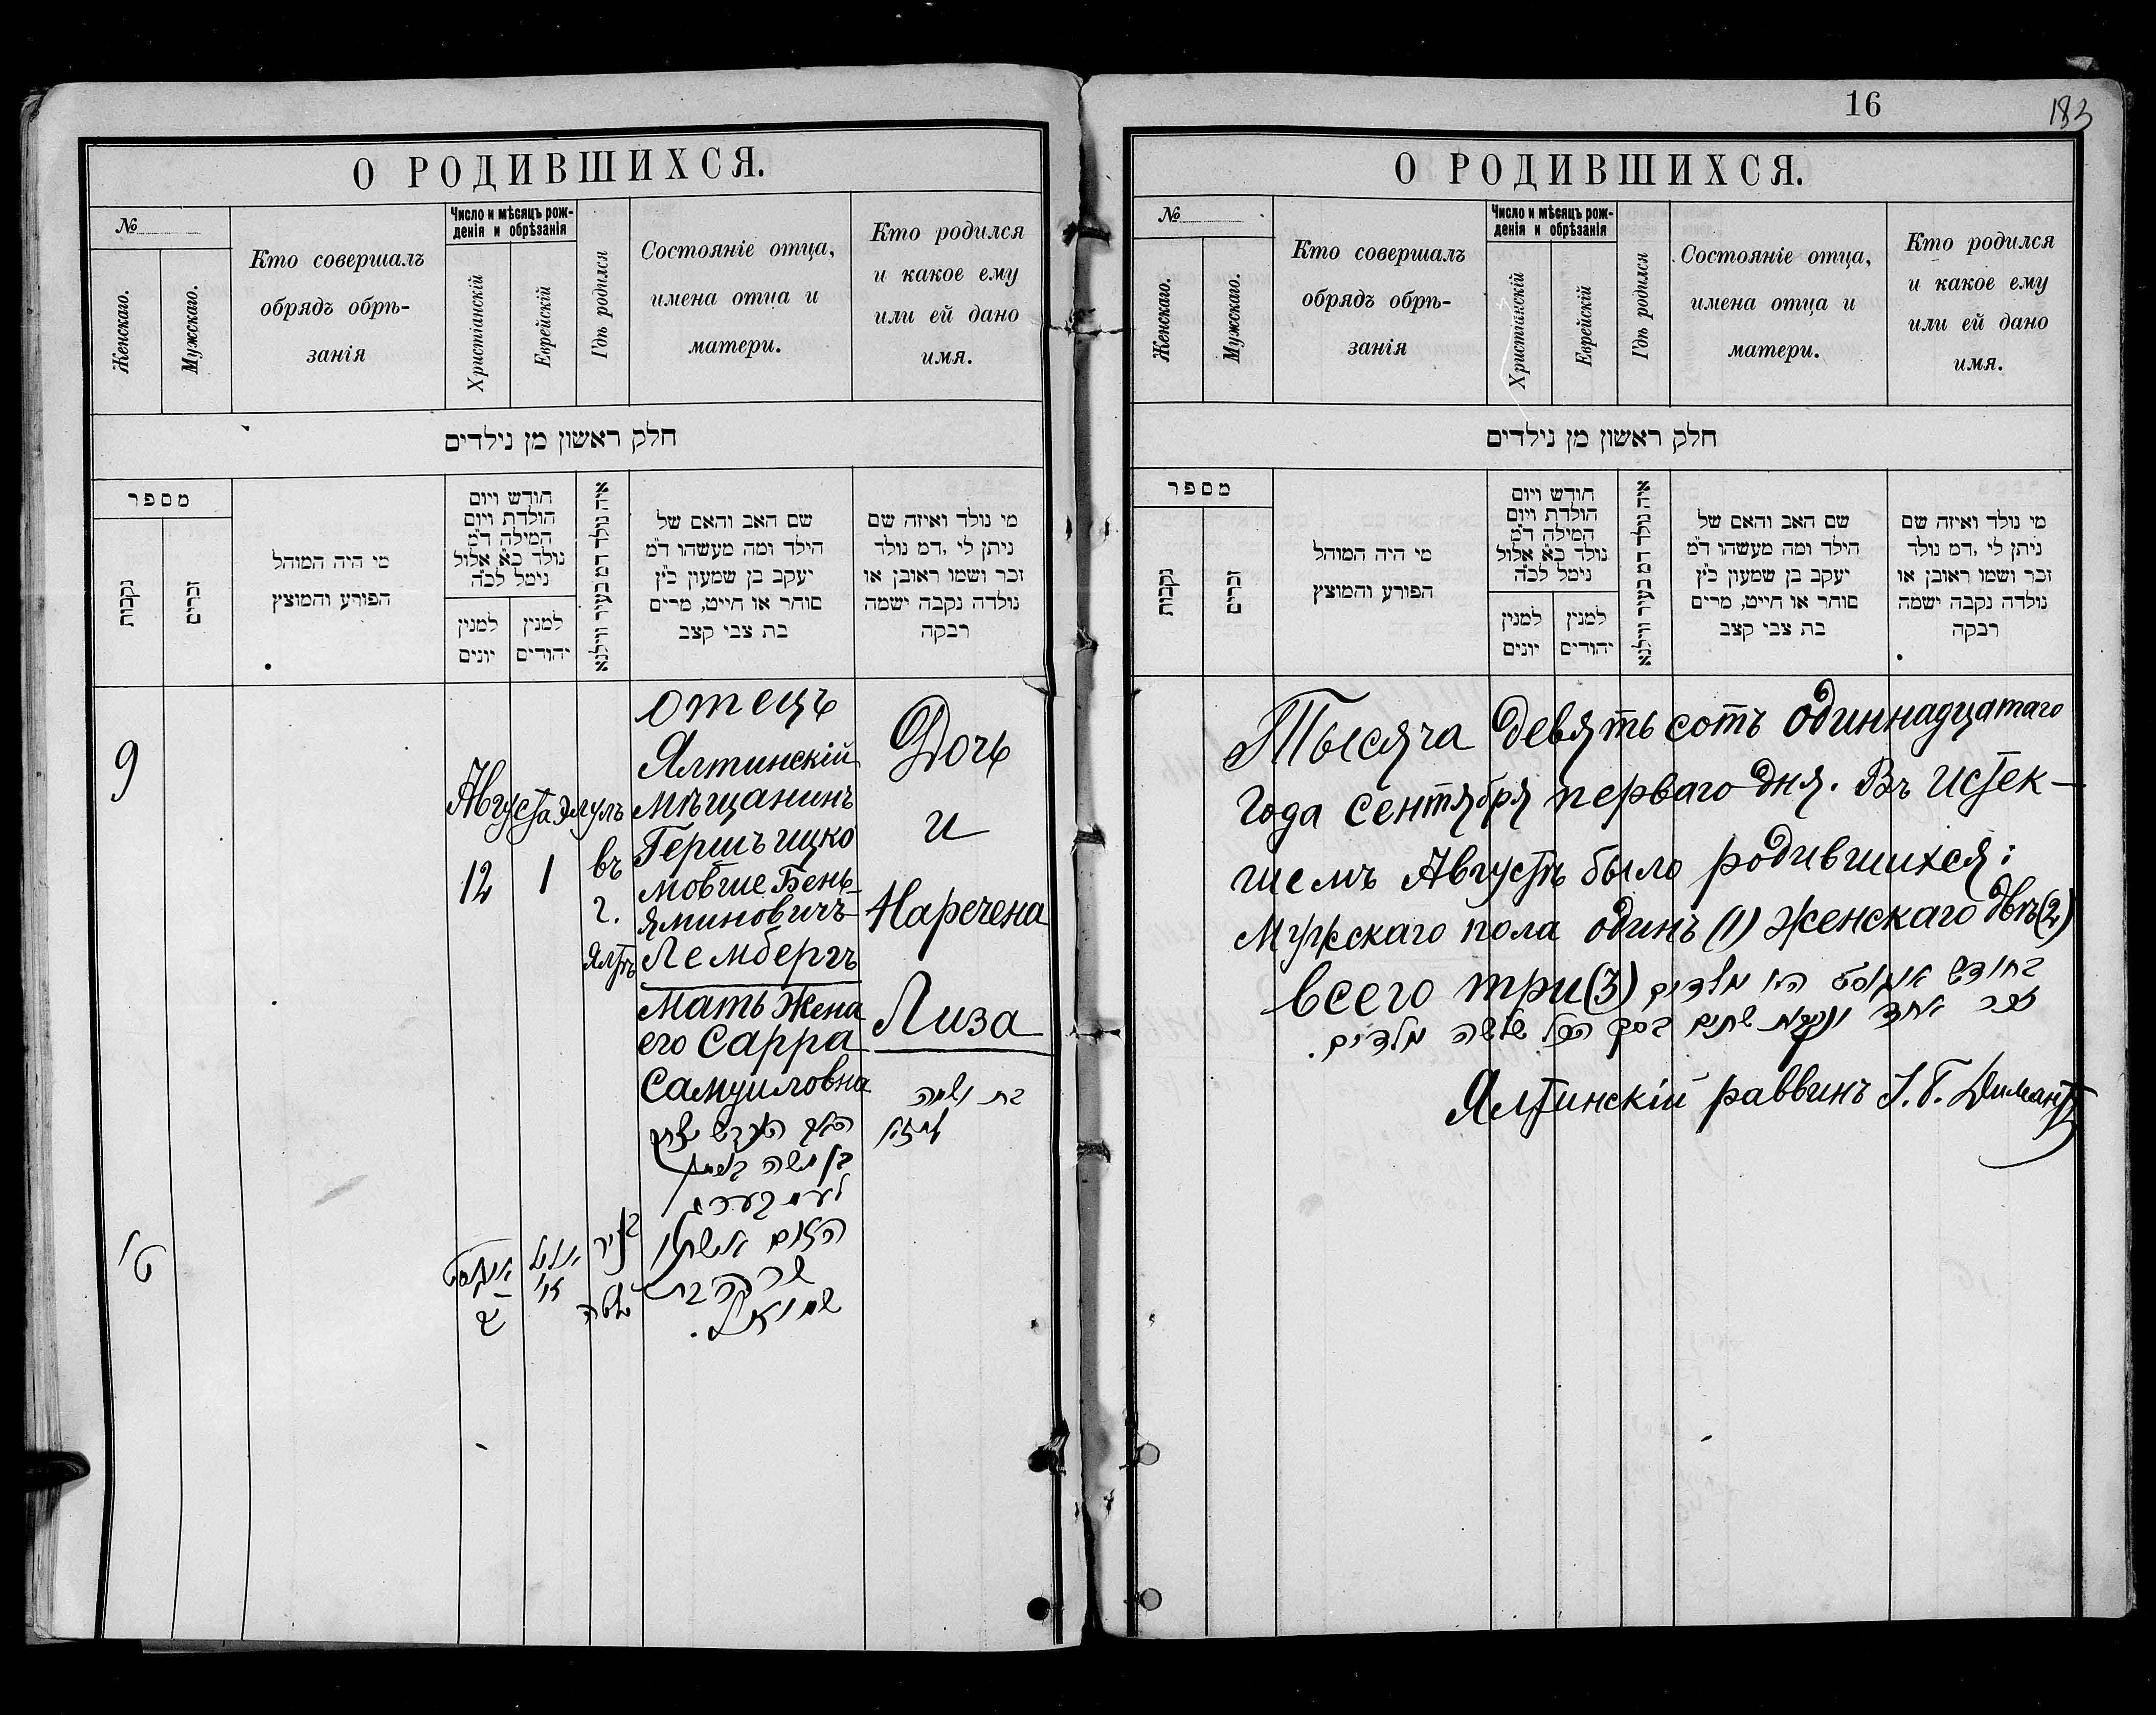 16
183
О РОДИВШИХСЯ.
№
Женскаго.
Мужскаго.
Кто совершалъ
обрядъ обрѣ-
занія
Число и мѣсяцъ рож-
денія и обрѣзанія
Христіанскій
Еврейскій
Гдѣ родился
Состояніе отца,
имена отца и
матери.
Кто родился
и какое ему
или ей дано
имя.
חלק ראשון מן נילדים
מספר
נקבות
זכרים
מי היה המוהל
הפורע והמוצץ
חודש ויום
הולדת ויום
המילה ד״מ
נולד כ״א אלול
נימל לכ״ה
למנין
יונים
למנין
יהודים
איה נולד דמ בעיר ווילנא
שם האב והאם של
הילד ומה מעשהו ד״מ
יעקב בן שמעון כ״ץ
סוחר או חייט, מרים
בת צבי קצב
מי נולד ואיזה שם
ניתן לי, דמ נולד
זכר ושמו ראובן או
נולדה נקבה ישמה
רבקה
9
Августа
12
Элулъ
1
въ
г.
Ялтѣ
отецъ
Ялтинскій
мѣщанинъ
Гершъ ицко
мовше Бень-
яминовичъ
Лембергъ
Мать Жена
его Сарра
Самуиловна
Дочь
и
Наречена
Лиза
ט׳
בעיר
בן משה
לעמבערג
האם אשתו
שרה בת
שמואל.
בת ושמה
О РОДИВШИХСЯ.
№
Женскаго.
Мужскаго.
Кто совершалъ
обрядъ обрѣ-
занія
Число и мѣсяцъ рож-
денія и обрѣзанія
Христіанскій
Еврейскій
Гдѣ родился
Состояніе отца,
имена отца и
матери.
Кто родился
и какое ему
или ей дано
имя.
חלק ראשון מן נילדים
מספר
נקבות
זכרים
מי היה המוהל
הפורע והמוצץ
חודש ויום
הולדת ויום
המילה ד״מ
נולד כ״א אלול
נימל לכ״ה
למנין
יונים
למנין
יהודים
איה נולד דמ בעיר ווילנא
שם האב והאם של
הילד ומה מעשהו ד״מ
יעקב בן שמעון כ״ץ
סוחר או חייט, מרים
בת צבי קצב
מי נולד ואיזה שם
ניתן לי, דמ נולד
זכר ושמו ראובן או
נולדה נקבה ישמה
רבקה
Тысяча девять сотъ одиннадцатаго
года сентября перваго дня. Въ истек-
шемъ Августѣ было родившихся:
Мужскаго пола одинъ (1) женскаго двѣ (2)
всего три (3) בחודש אוגוסט היו נולדים
זכר אחד ונקבות שתים בסך הכל שלשה נולדים.
Ялтинскій раввинъ